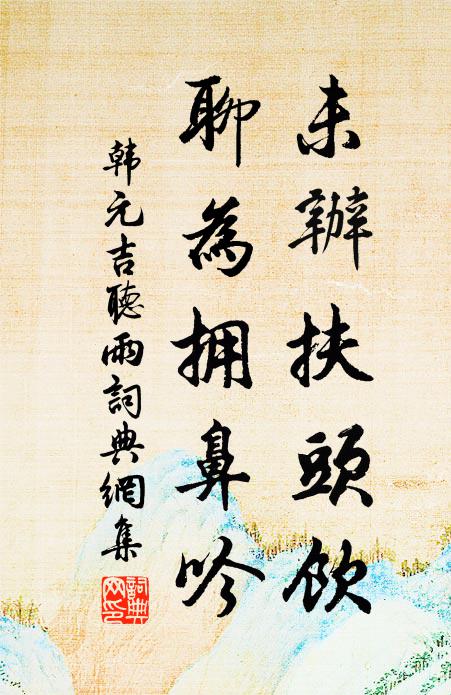 未辦扶頭飲
聊為拥鼻吟
韩元吉聽雨詞典網集
詞典网印